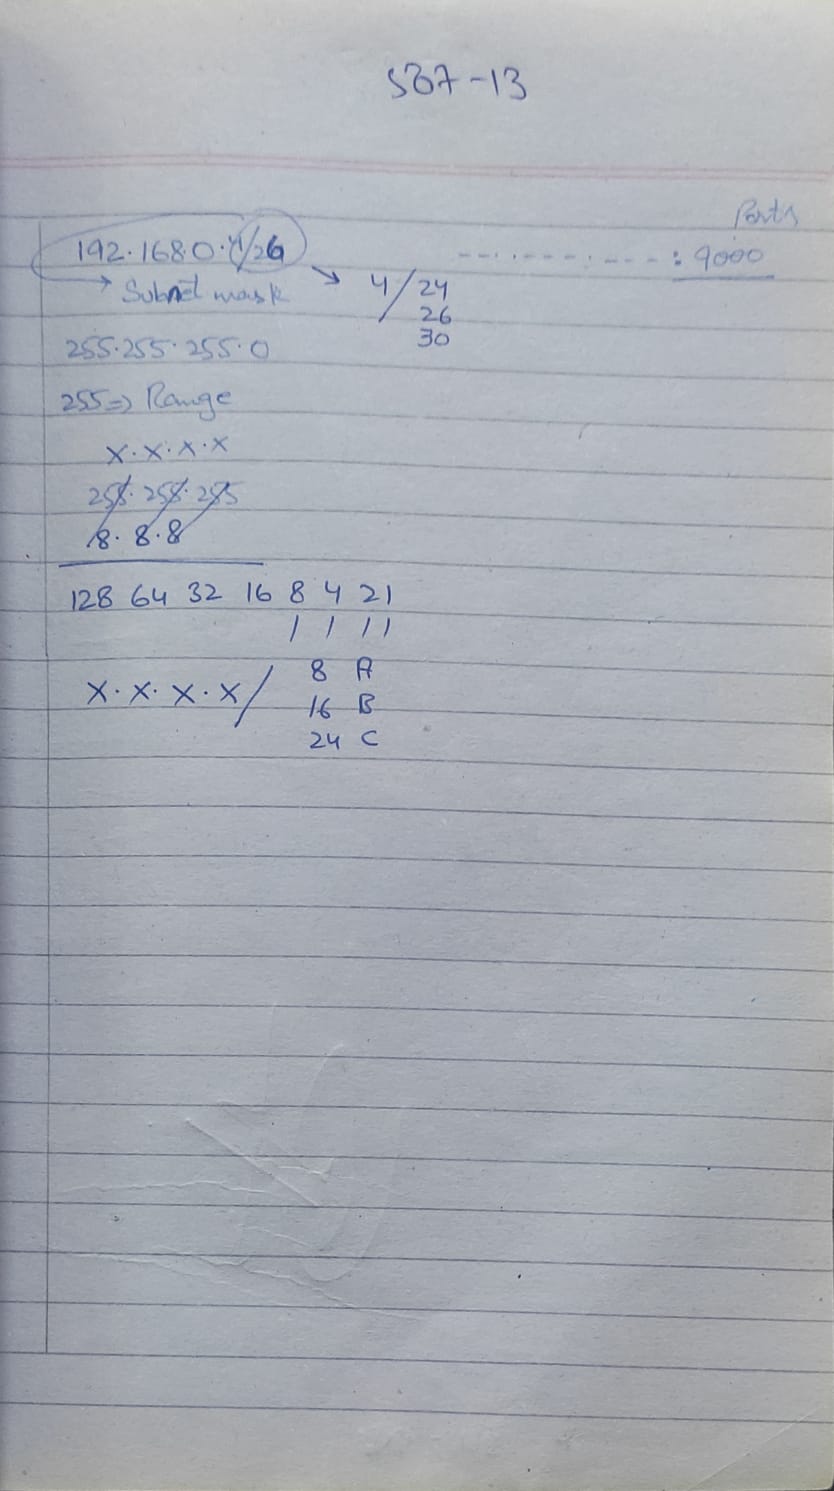 587-13
Ports
192.168.0.4/26
--.--.-.--- : 9000
→ Subnet mask
→ 4/24
26
30
255.255.255.0
255 => Range
x.x.x.x
255.255.255
8.8.8
128 64 32 16 8 4 2 1
1 1 1 1
x.x.x.x/ 8 A
16 B
24 C